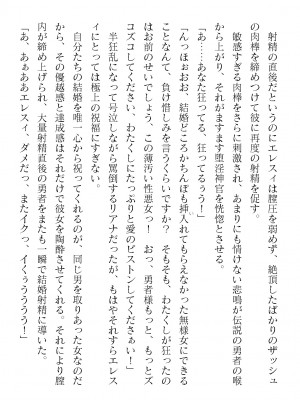 射精の直後だというのにエレスィは膣圧を弱めず、絶頂したばかりのザッシュ
の肉棒をしゃぶって彼に再度の射精を促す。
敏感すぎる肉棒をさらに刺激され、あまりにも情けない悲鳴が伝説の勇者の喉
から上がり、それがますます堕淫神官を恍惚とさせる。
「あ、あなた狂ってる、狂ってるぅう！」
「んっほぉおお、結婚どころかちんぽも挿入れてもらえなかった無様女にできる
ことなんて、負け惜しみを言うくらいですか？　そもそも、わたくしが狂ったの
はお前のせいでしょう、この薄汚い性悪女っ！　おっ、勇者様もっと、もっとズ
コズコしてくださいっ、わたくしにたっぷりと愛のピストンしてくださぁい！」
半狂乱になって号泣しながら罵倒するリアナだったが、もはやそれすらエレス
ィにとっては極上の祝福にすぎない。
自分たちの結婚を唯一心から祝ってくれるのが、同じ男を取りあった女なのだ
から、その優越感と達成感はそれだけで彼女を陶酔させてくれる。それにより膣
内が締め上げられ、大量射精直後の勇者をまたも一瞬で結婚射精に導いた。
「あ、あぁああエレスィ、ダメだっ、またイクっ、イくぅうううう！」